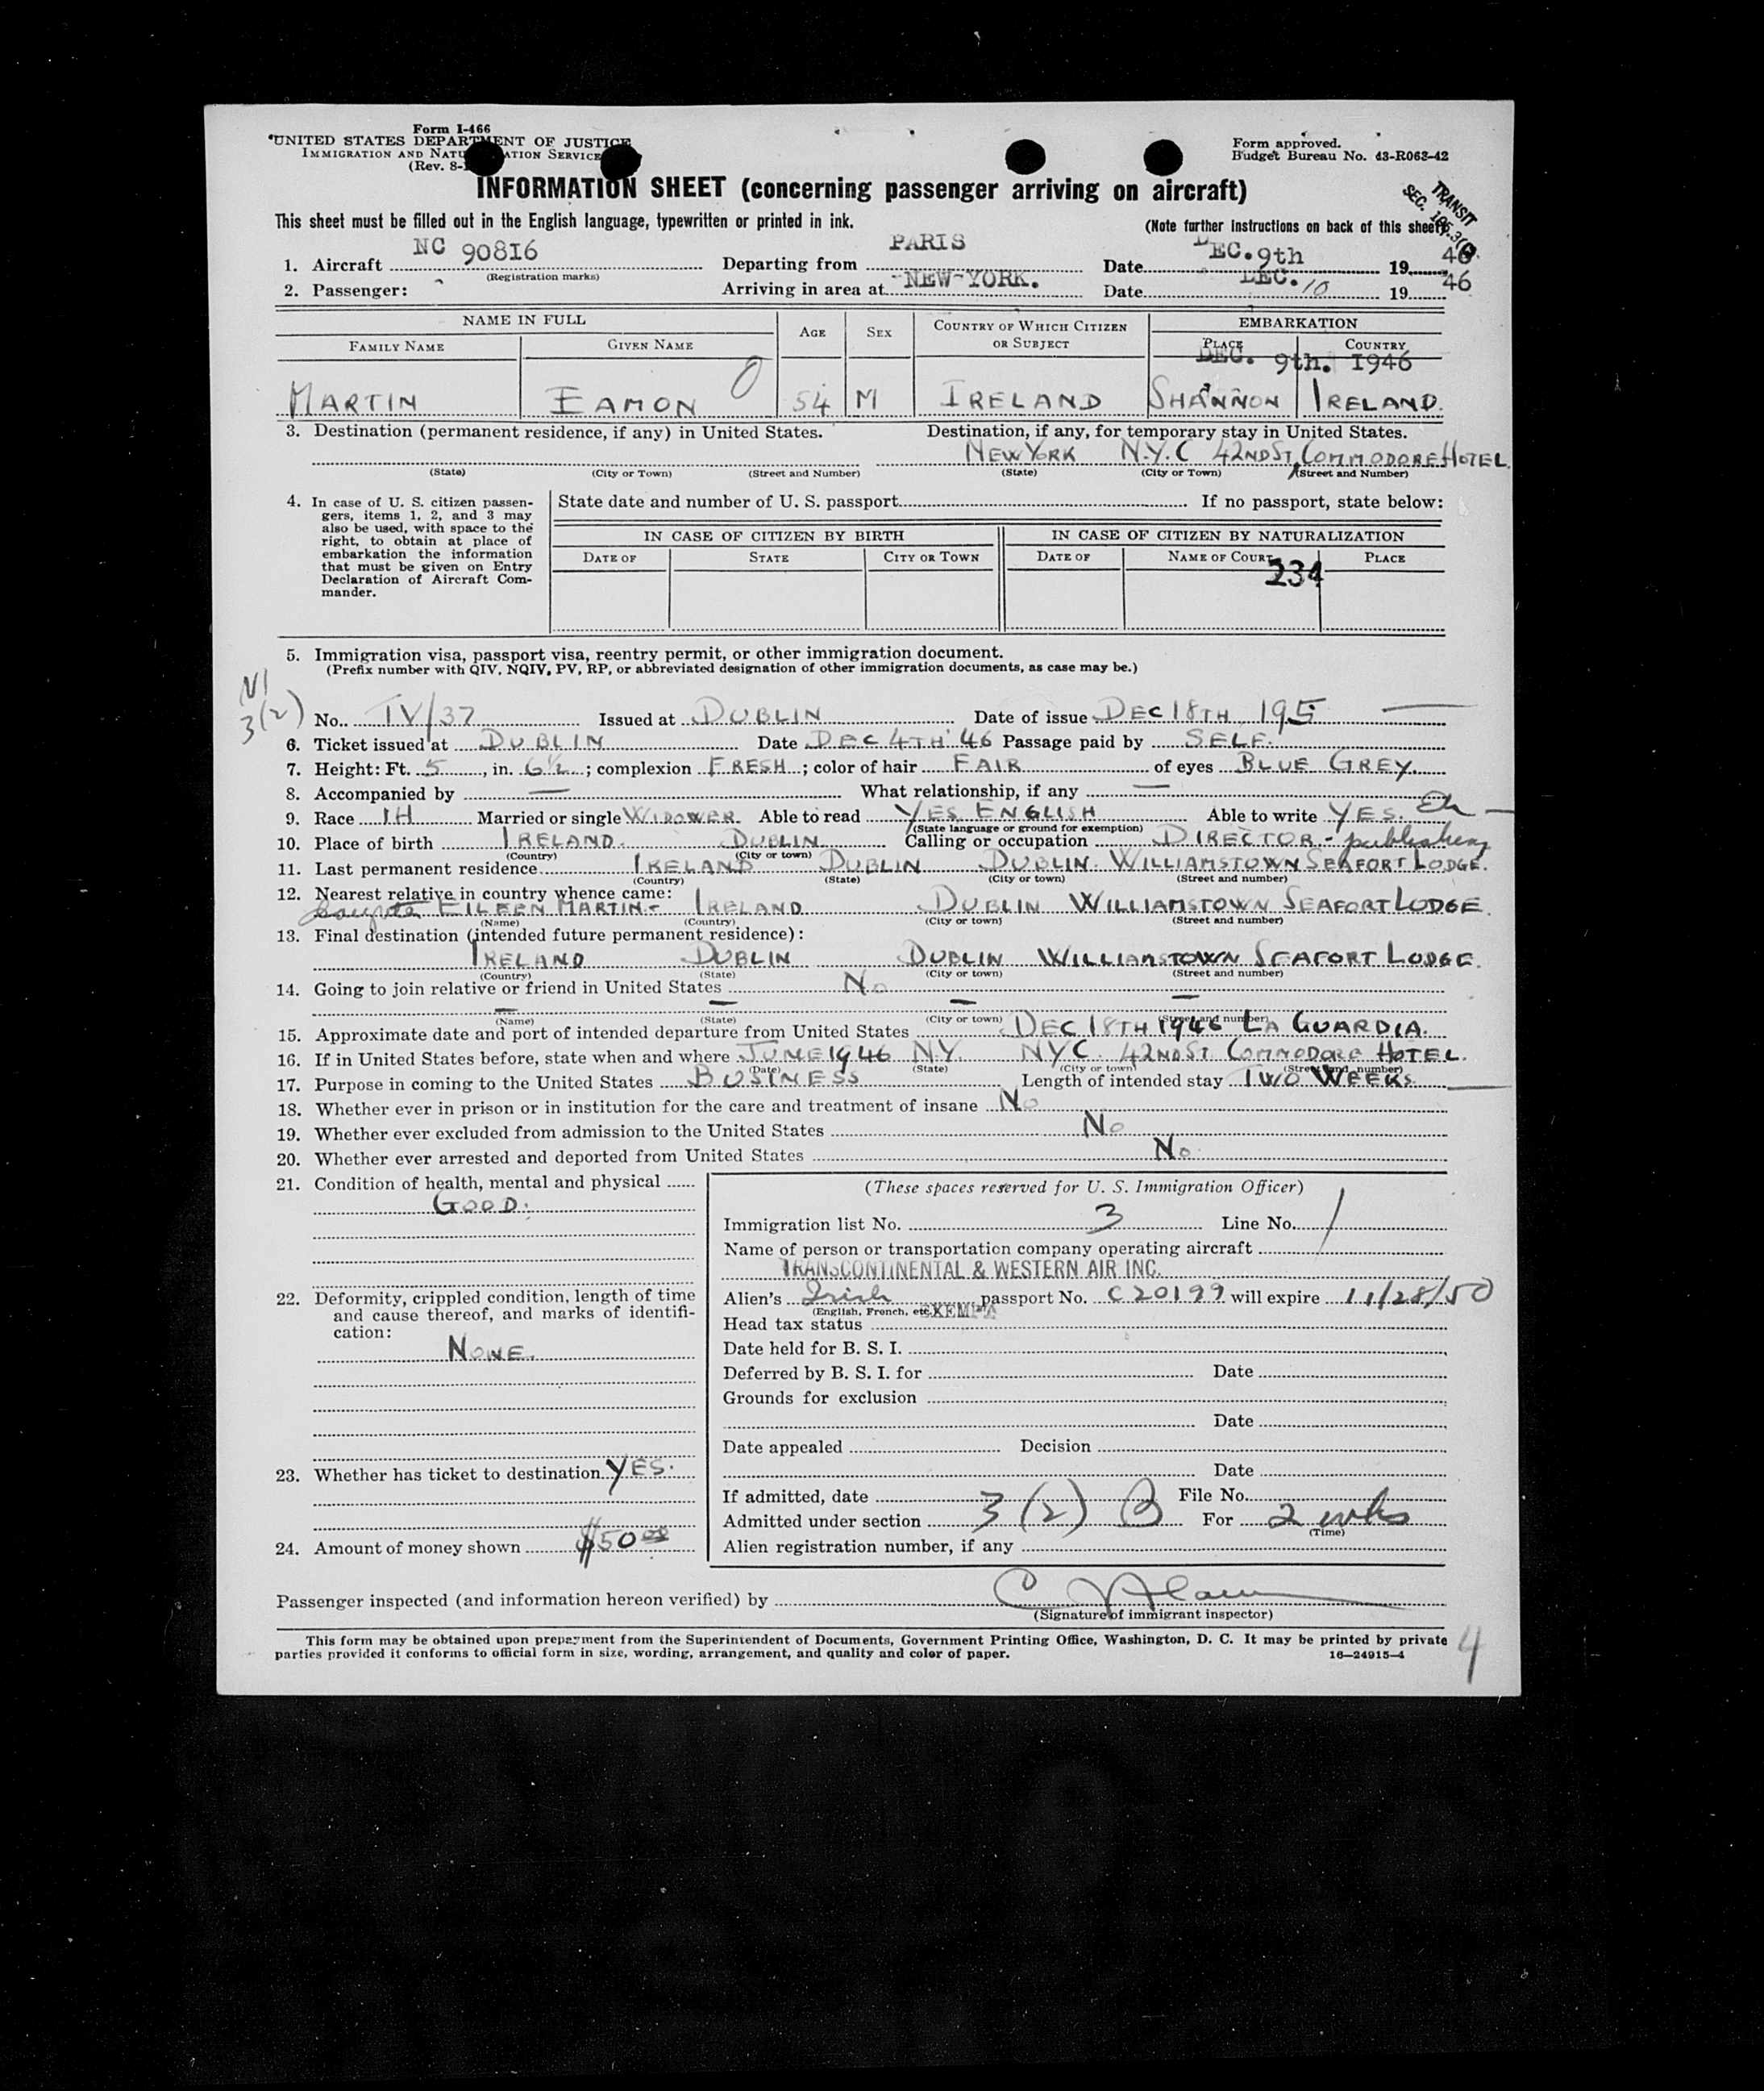 Form I-466
UNITED STATES DEPARTMENT OF JUSTICE
IMMIGRATION AND NATU ATION SERVICE
(Rev. 8-
Form approved.
Budget Bureau No. 43-R063-42
INFORMATION SHEET (concerning passenger arriving on aircraft)
TRANSIT
SEC.
This sheet must be filled out in the English language, typewritten or printed in ink. (Note further instructions on back of this sheet)
1. Aircraft NC 90816 Departing from PARIS Date DEC. 9th 19 46
(Registration marks)
2. Passenger: Arriving in area at NEW-YORK. Date DEC. 10 19 46
NAME IN FULL AGE SEX COUNTRY OF WHICH CITIZEN OR SUBJECT EMBARKATION
FAMILY NAME GIVEN NAME PLACE COUNTRY
DEC. 9th. 1946
MARTIN EAMON 54 M IRELAND SHANNON IRELAND.
3. Destination (permanent residence, if any) in United States. Destination, if any, for temporary stay in United States.
NEW YORK N.Y.C 42ND ST, COMMODORE HOTEL
(State) (City or Town) (Street and Number) (State) (City or Town) (Street and Number)
4. In case of U. S. citizen passengers, items 1, 2, and 3 may also be used, with space to the right, to obtain at place of embarkation the information that must be given on Entry Declaration of Aircraft Commander.
State date and number of U. S. passport If no passport, state below:
IN CASE OF CITIZEN BY BIRTH IN CASE OF CITIZEN BY NATURALIZATION
DATE OF STATE CITY OR TOWN DATE OF NAME OF COURT PLACE
234
5. Immigration visa, passport visa, reentry permit, or other immigration document.
(Prefix number with QIV, NQIV, PV, RP, or abbreviated designation of other immigration documents, as case may be.)
3(2)
No. TV/37 Issued at DUBLIN Date of issue DEC 18TH 195
6. Ticket issued at DUBLIN Date DEC 4TH '46 Passage paid by SELF.
7. Height: Ft. 5, in. 6½; complexion FRESH; color of hair FAIR of eyes BLUE GREY.
8. Accompanied by — What relationship, if any —
9. Race IH Married or single WIDOWER. Able to read YES ENGLISH Able to write YES.
(State language or ground for exemption)
10. Place of birth IRELAND. DUBLIN Calling or occupation DIRECTOR - publishing
(Country) (City or town)
11. Last permanent residence IRELAND DUBLIN DUBLIN. WILLIAMSTOWN SEAFORT LODGE.
(Country) (State) (City or town) (Street and number)
12. Nearest relative in country whence came:
EILEEN MARTIN - IRELAND DUBLIN WILLIAMSTOWN SEAFORT LODGE.
(Name) (Country) (City or town) (Street and number)
13. Final destination (intended future permanent residence):
IRELAND DUBLIN DUBLIN WILLIAMSTOWN SEAFORT LODGE.
(Country) (State) (City or town) (Street and number)
14. Going to join relative or friend in United States No
— — — —
(Name) (State) (City or town) (Street and number)
15. Approximate date and port of intended departure from United States DEC 18TH 1946 LA GUARDIA.
16. If in United States before, state when and where JUNE 1946 NY. NYC. 42ND ST. COMMODORE HOTEL.
(Date) (State) (City or town) (Street and number)
17. Purpose in coming to the United States BUSINESS Length of intended stay TWO WEEKS.
18. Whether ever in prison or in institution for the care and treatment of insane No
19. Whether ever excluded from admission to the United States No
20. Whether ever arrested and deported from United States No.
21. Condition of health, mental and physical
GOOD.
22. Deformity, crippled condition, length of time and cause thereof, and marks of identification:
NONE.
23. Whether has ticket to destination YES.
24. Amount of money shown $50 00
(These spaces reserved for U. S. Immigration Officer)
Immigration list No. 3 Line No. 1
Name of person or transportation company operating aircraft
TRANSCONTINENTAL & WESTERN AIR INC.
Alien's Irish passport No. C20199 will expire 11/28/50
(English, French, etc.) EXEMPT
Head tax status
Date held for B. S. I.
Deferred by B. S. I. for Date
Grounds for exclusion
Date
Date appealed Decision
Date
If admitted, date File No.
Admitted under section 3(2) B For 2 wks
(Time)
Alien registration number, if any
Passenger inspected (and information hereon verified) by
(Signature of immigrant inspector)
This form may be obtained upon prepayment from the Superintendent of Documents, Government Printing Office, Washington, D. C. It may be printed by private
parties provided it conforms to official form in size, wording, arrangement, and quality and color of paper. 16—24915-4
4